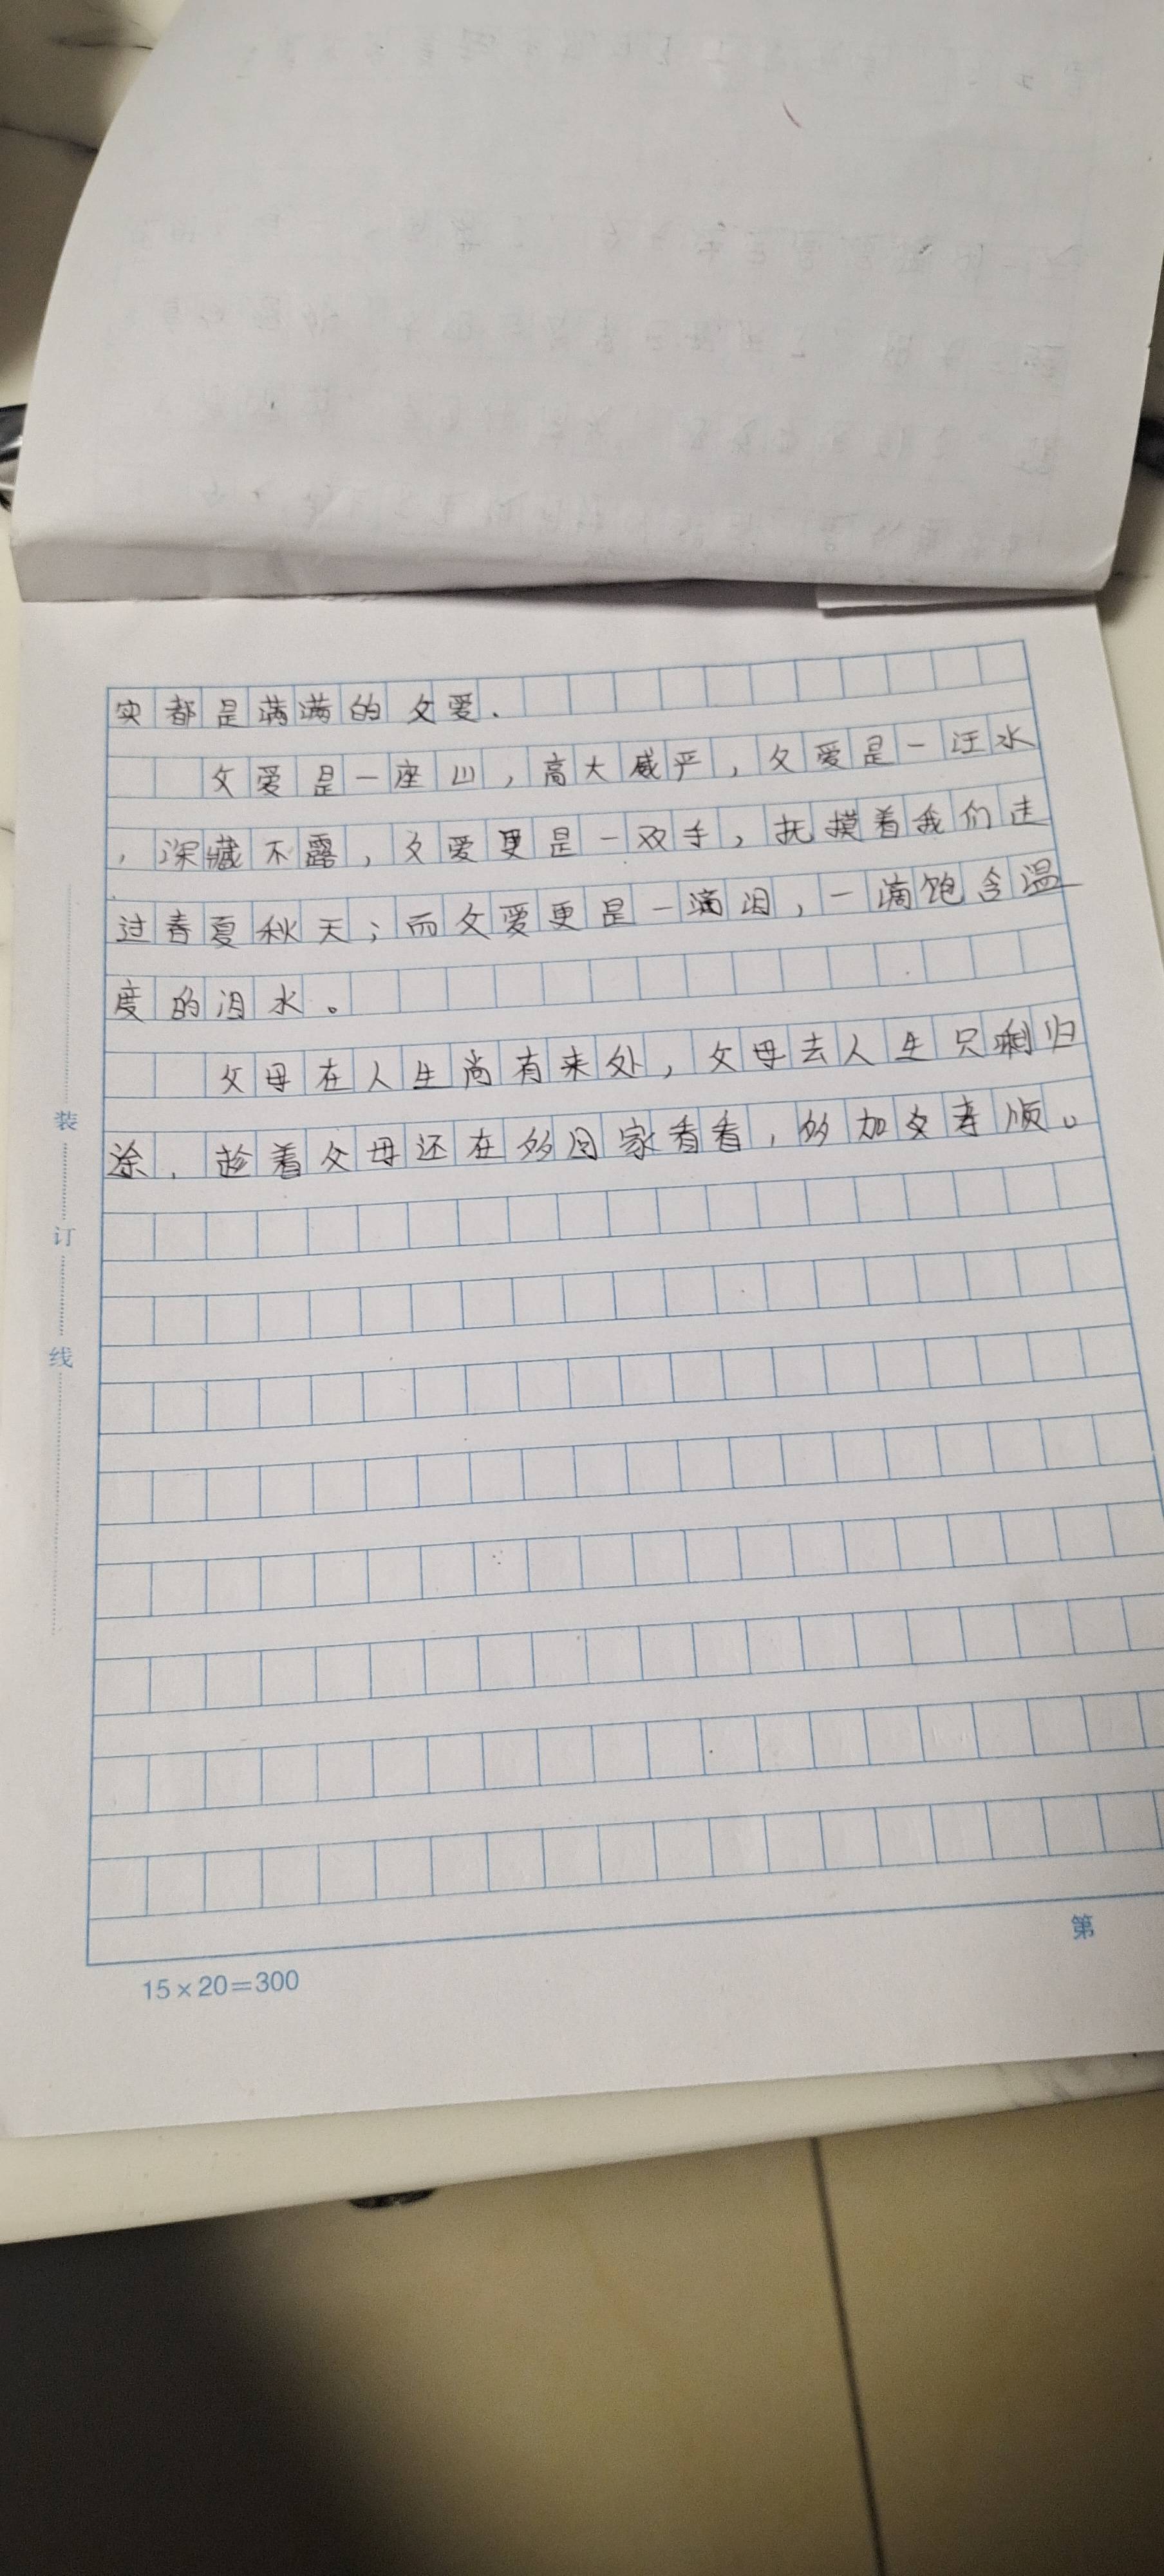 实都是满满的父爱.
父爱是一座山,高大威严,父爱是一汪水
,深藏不露,父爱更是一双手,抚摸着我们走
过春夏秋天;而父爱更是一滴泪,一滴饱含温
度的泪水。
父母在人生尚有来处,父母去人生只剩归
途.趁着父母还在多回家看看,多加孝顺。
装
订
线
15×20=300
第